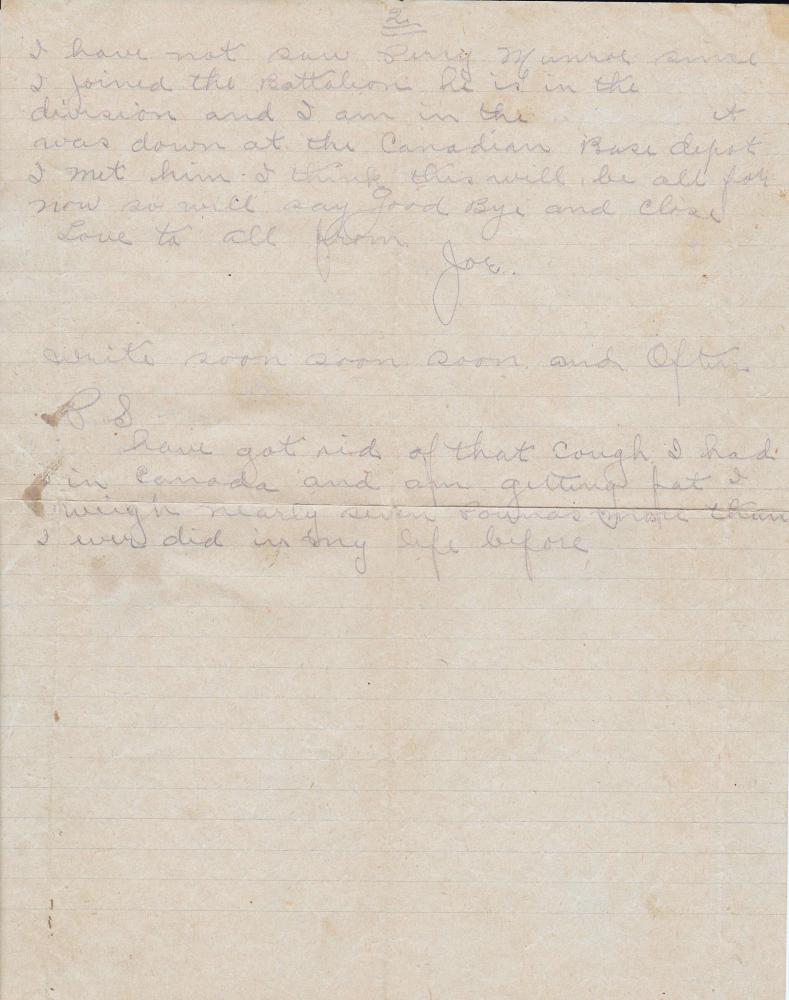 2.
I have not saw Perry Munroe since
I joined the Battalion he is in the
division and I am in the it
was down at the Canadian Base depot
I met him. I think this will be all for
now so will say Good Bye and close
Love to all from
Joe.
write soon soon soon and Often
P S
have got rid of that cough I had
in Canada and am getting fat I
weigh nearly seven Pounds more than
I ever did in my life before